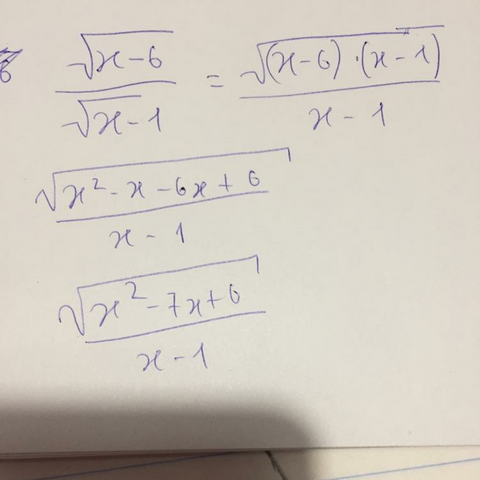 6 √(x-6) / (√x-1) = √((x-6)·(x-1)) / (x-1)
√(x²-x-6x+6) / (x-1)
√(x²-7x+6) / (x-1)